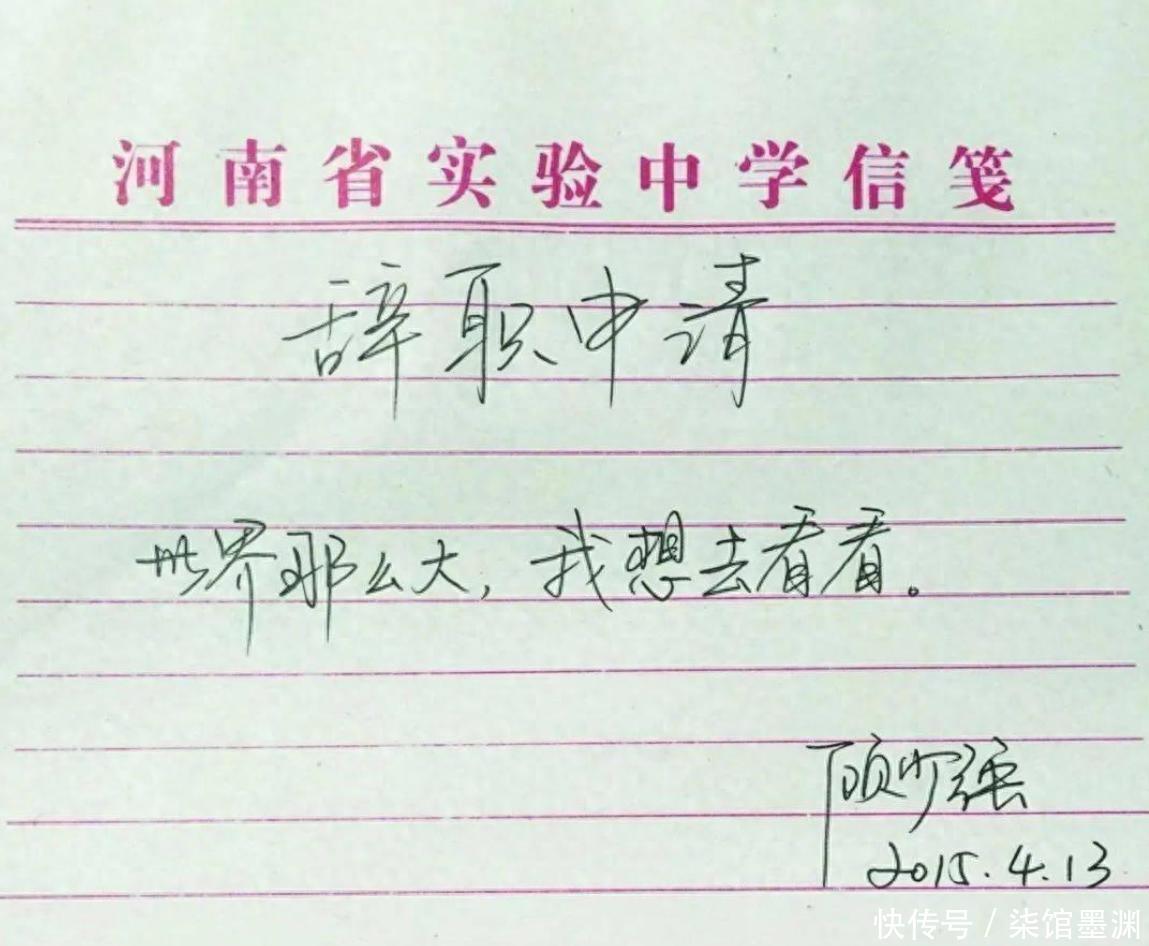 河南省实验中学信笺
辞职申请
世界那么大，我想去看看。
顾少强
2015.4.13
快传号 / 柒馆墨渊